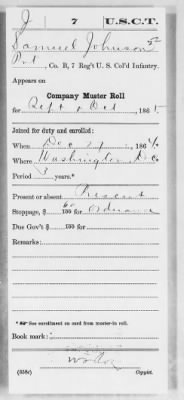 J 7 U.S.C.T.
Samuel Johnson
Pvt, Co. B, 7 Reg't U. S. Col'd Infantry.
Appears on
Company Muster Roll
for Sept & Oct, 186
Joined for duty and enrolled:
When Dec, 186
Where Washington D.C.
Period 3 years.*
Present or absent Present
Stoppage, $ 100 for Ordnance
Due Gov't $ 100 for
Remarks:
* See enrollment on card from muster-in roll.
Book mark:
(358c) Copyist.